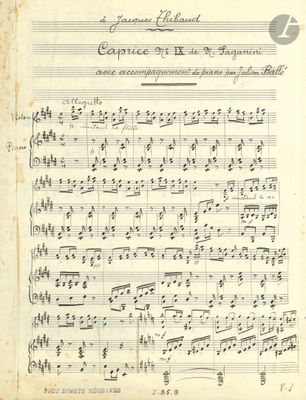 à Jacques Thibaud
Caprice Nº IX de N. Paganini
avec accompagnement de piano par Julien
Allegretto
Violon
imitant la flûte
Piano
imitant le cor
m.f
m.f
TOUS DROITS RÉSERVÉS
J.85.B